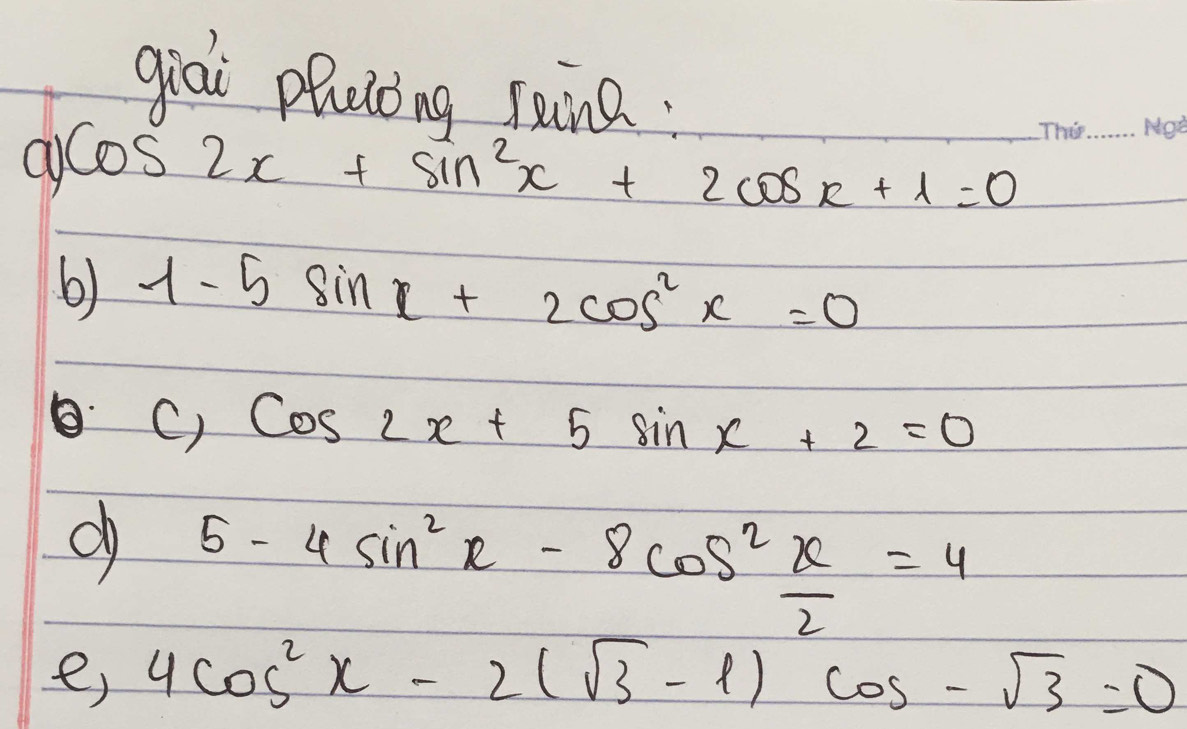 giải phương trình:
Thứ....... Ngà
a) Cos 2x + sin²x + 2cosx + 1 = 0
b) 1 - 5 sin x + 2cos² x = 0
c, Cos 2x + 5 sin x + 2 = 0
d) 5 - 4 sin² x - 8cos² x/2 = 4
e, 4cos² x - 2(√3 - 1) cos - √3 = 0